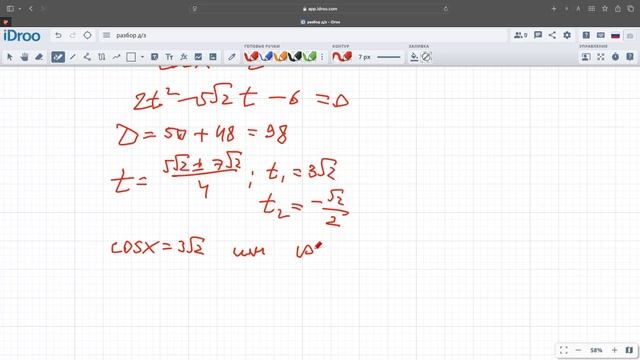 app.idroo.com
разбор д/з - iDroo
iDroo
разбор д/з
ГОТОВЫЕ РУЧКИ
КОНТУР
ЗАЛИВКА
УПРАВЛЕНИЕ
7 px
2t² - 5√2 t - 6 = 0
D = 50 + 48 = 98
t = (5√2 ± 7√2)/4 ; t₁ = 3√2
t₂ = -√2/2
cosx = 3√2 или
58%